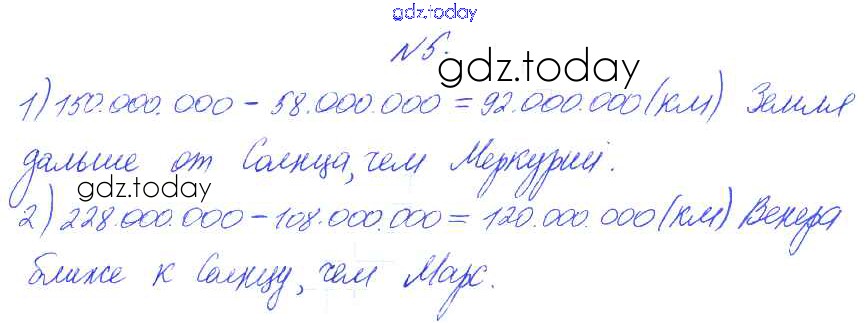 gdz.today
№5.
gdz.today
1) 150.000.000 - 58.000.000 = 92.000.000 (км) Земля
дальше от Солнца, чем Меркурий.
gdz.today
2) 228.000.000 - 108.000.000 = 120.000.000 (км) Венера
ближе к Солнцу, чем Марс.